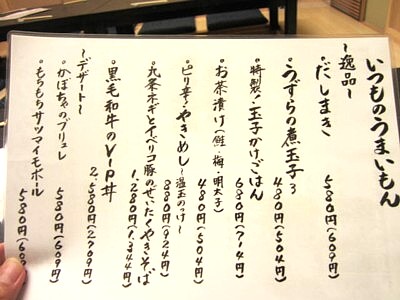 いつものうまいもん
〜逸品〜
だしまき 580円(609円)
うずらの煮玉子3 480円(504円)
特製!玉子かけごはん 680円(714円)
お茶漬け(鮭・梅・明太子) 480円(504円)
ピリ辛!やきめし〜温玉のっけ〜 880円(924円)
九条ネギとイベリコ豚のぜいたくやきそば 1.280円(1.344円)
黒毛和牛のVIP丼 2.580円(2.709円)
〜デザート〜
かぼちゃのブリュレ 580円(609円)
もちもちサツマイモボール 580円(609